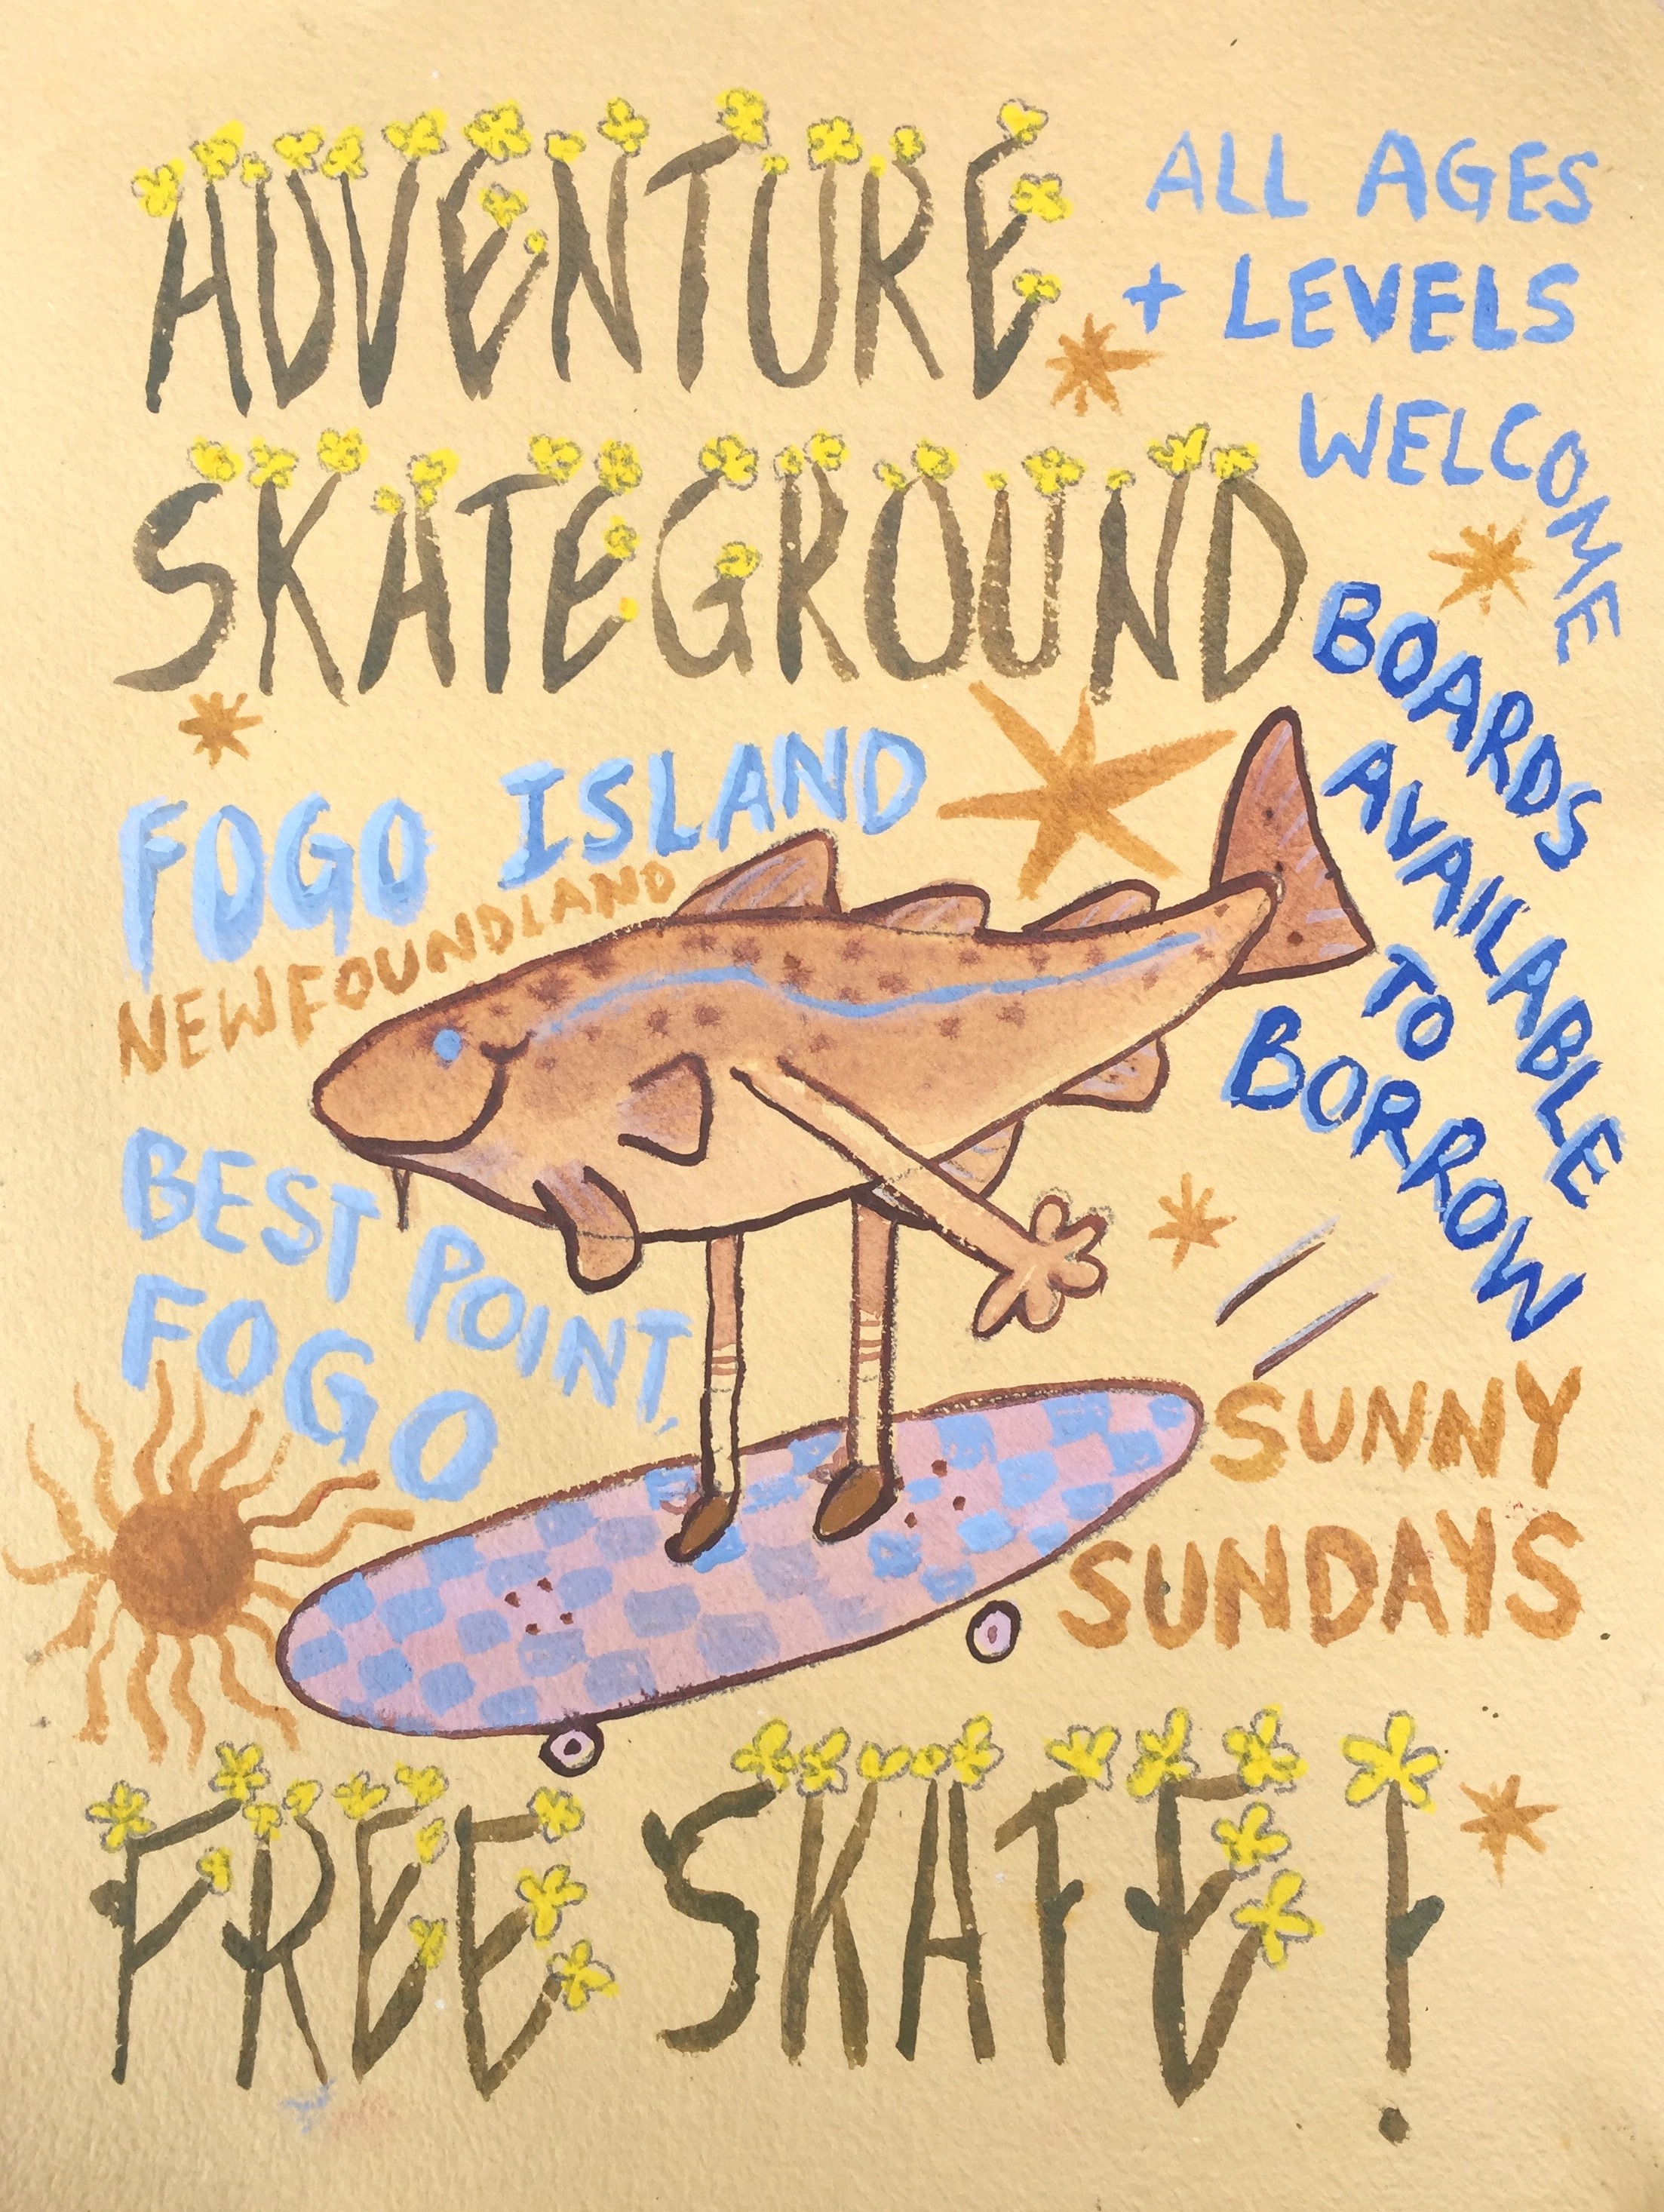 ADVENTURE
SKATEGROUND
ALL AGES
+ LEVELS
WELCOME
BOARDS
AVAILABLE
TO
BORROW
FOGO ISLAND
NEWFOUNDLAND
BEST POINT,
FOGO
SUNNY
SUNDAYS
FREE SKATE!